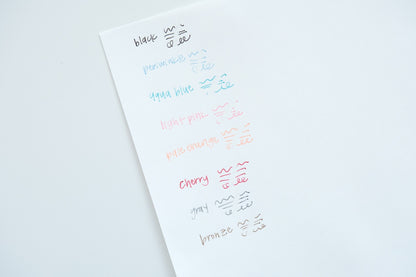 black
aqua blue
light pink
pale orange
cherry
gray
bronze